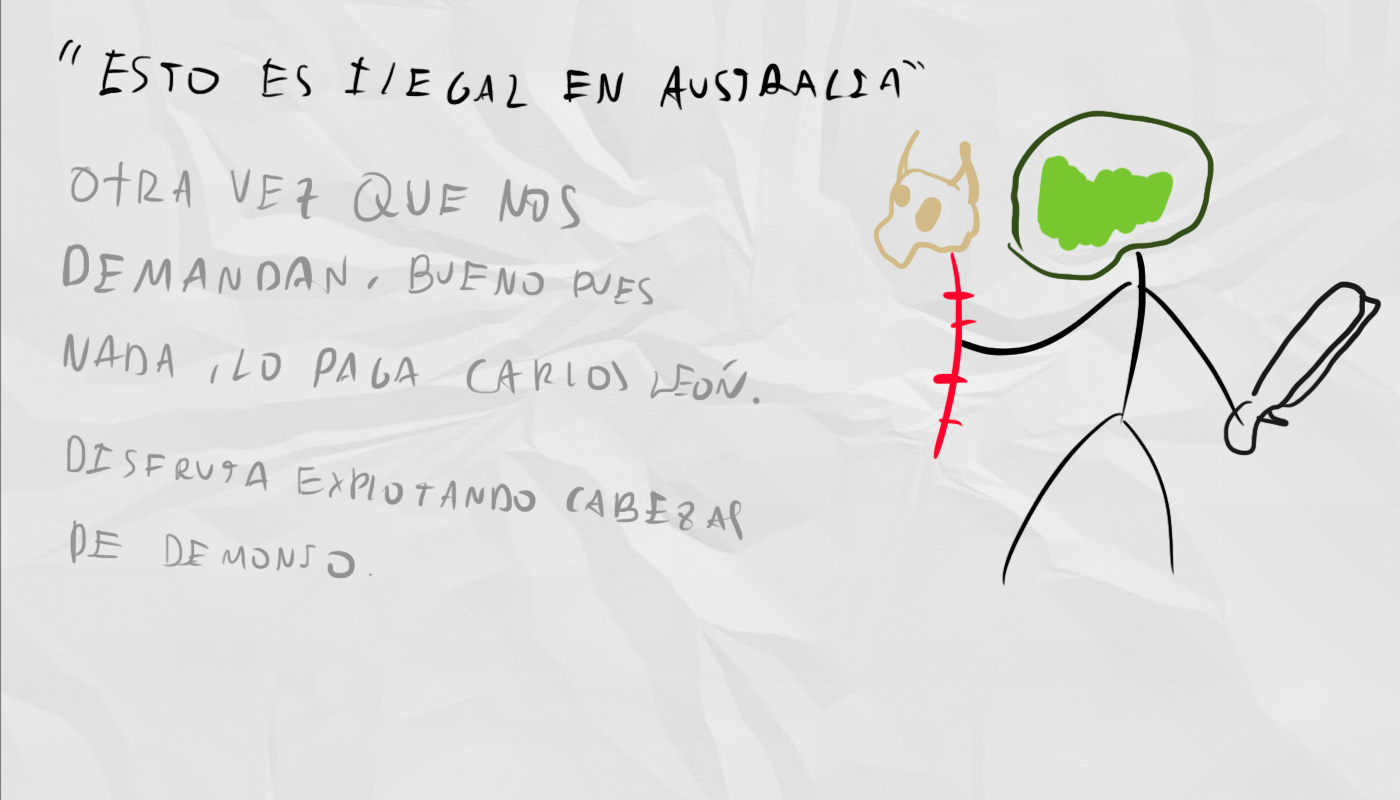 "ESTO ES ILEGAL EN AUSTRALIA"
OTRA VEZ QUE NOS
DEMANDAN, BUENO PUES
NADA, LO PAGA CARLOS LEOÑ.
DISFRUTA EXPLOTANDO CABEZAS
DE DEMONIO.